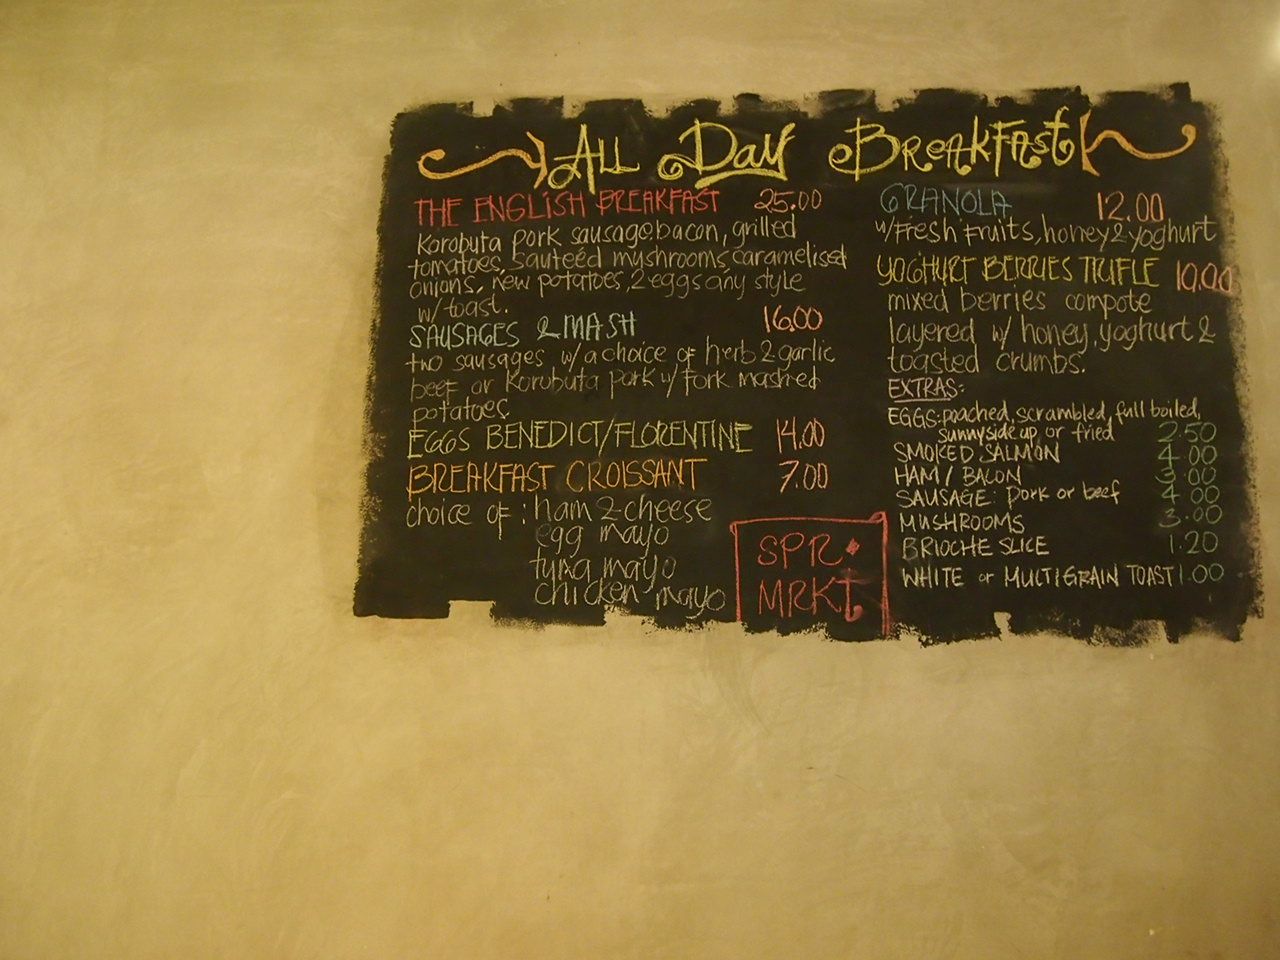 All Day Breakfast
THE ENGLISH BREAKFAST 25.00
Korobuta pork sausage, bacon, grilled
tomatoes, sauteed mushrooms, caramelised
onions, new potatoes, 2 eggs any style
w/ toast.
SAUSAGES & MASH 16.00
two sausages w/ a choice of herb & garlic
beef or Korobuta pork w/ fork mashed
potatoes.
EGGS BENEDICT/FLORENTINE 14.00
BREAKFAST CROISSANT 7.00
choice of: ham & cheese
egg mayo
tuna mayo
chicken mayo
SPR
MRKT
GRANOLA 12.00
w/ Fresh Fruits, honey & yoghurt
YOGHURT BERRIES TRIFLE 10.00
mixed berries compote
layered w/ honey, yoghurt &
toasted crumbs.
EXTRAS:
EGGS: poached, scrambled, full boiled,
sunnyside up, or fried 2.50
SMOKED SALMON 4.00
HAM / BACON 3.00
SAUSAGE: pork or beef 4.00
MUSHROOMS 3.00
BRIOCHE SLICE 1.20
WHITE or MULTIGRAIN TOAST 1.00